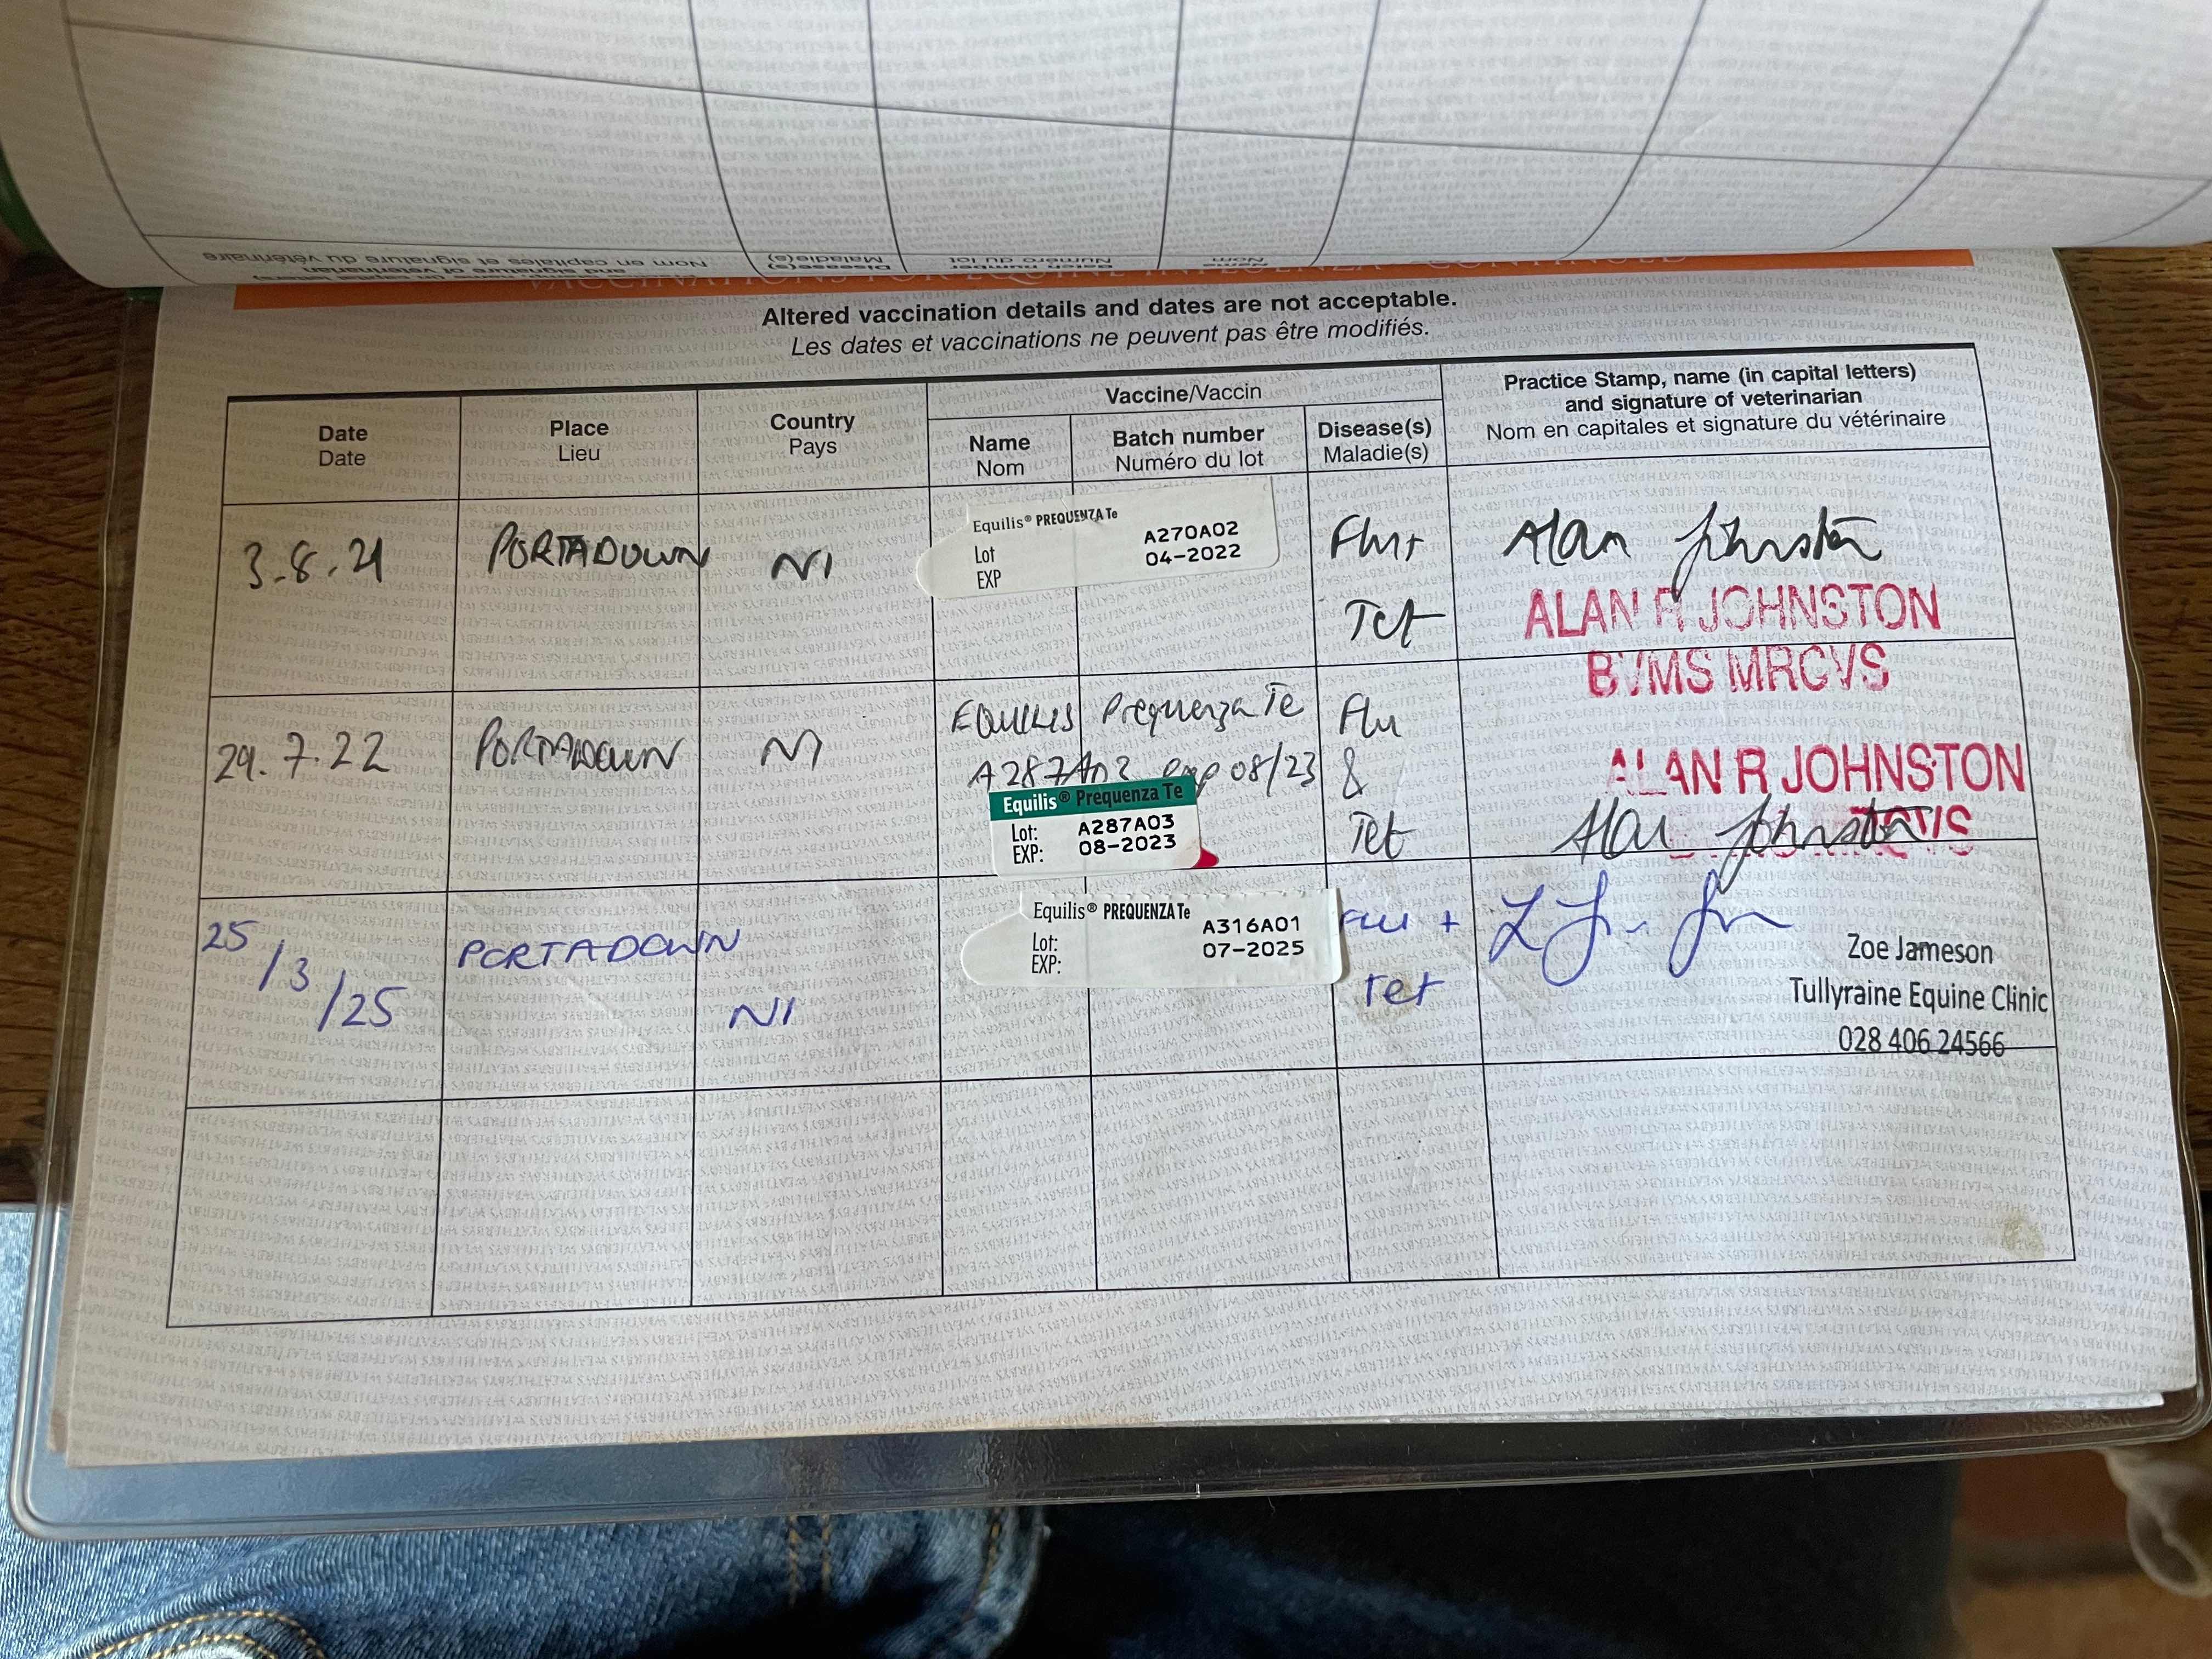 Nom en capitales et signature du vétérinaire
and signature of veterinarian
Disease(s)
Maladie(s)
Batch number
Numéro du lot
Nom
VACCINATIONS FOR EQUINE INFLUENZA - CONTINUED
Altered vaccination details and dates are not acceptable.
Les dates et vaccinations ne peuvent pas être modifiés.
Date
Date
Place
Lieu
Country
Pays
Vaccine/Vaccin
Name
Nom
Batch number
Numéro du lot
Disease(s)
Maladie(s)
Practice Stamp, name (in capital letters)
and signature of veterinarian
Nom en capitales et signature du vétérinaire
3.8.21
PORTADOWN
NI
Equilis® PREQUENZA Te
Lot A270A02
EXP 04-2022
Flu+
Tet
Alan Johnston
ALAN R JOHNSTON
BVMS MRCVS
29.7.22
PORTADOWN
NI
EQUILIS Prequenza Te
A287A03 exp 08/23
Equilis® Prequenza Te
Lot: A287A03
EXP: 08-2023
Flu
&
Tet
ALAN R JOHNSTON
Alan Johnston
25/3/25
PORTADOWN
NI
Equilis® PREQUENZA Te
Lot: A316A01
EXP: 07-2025
Flu +
Tet
Zoe Jameson
Tullyraine Equine Clinic
028 406 24566